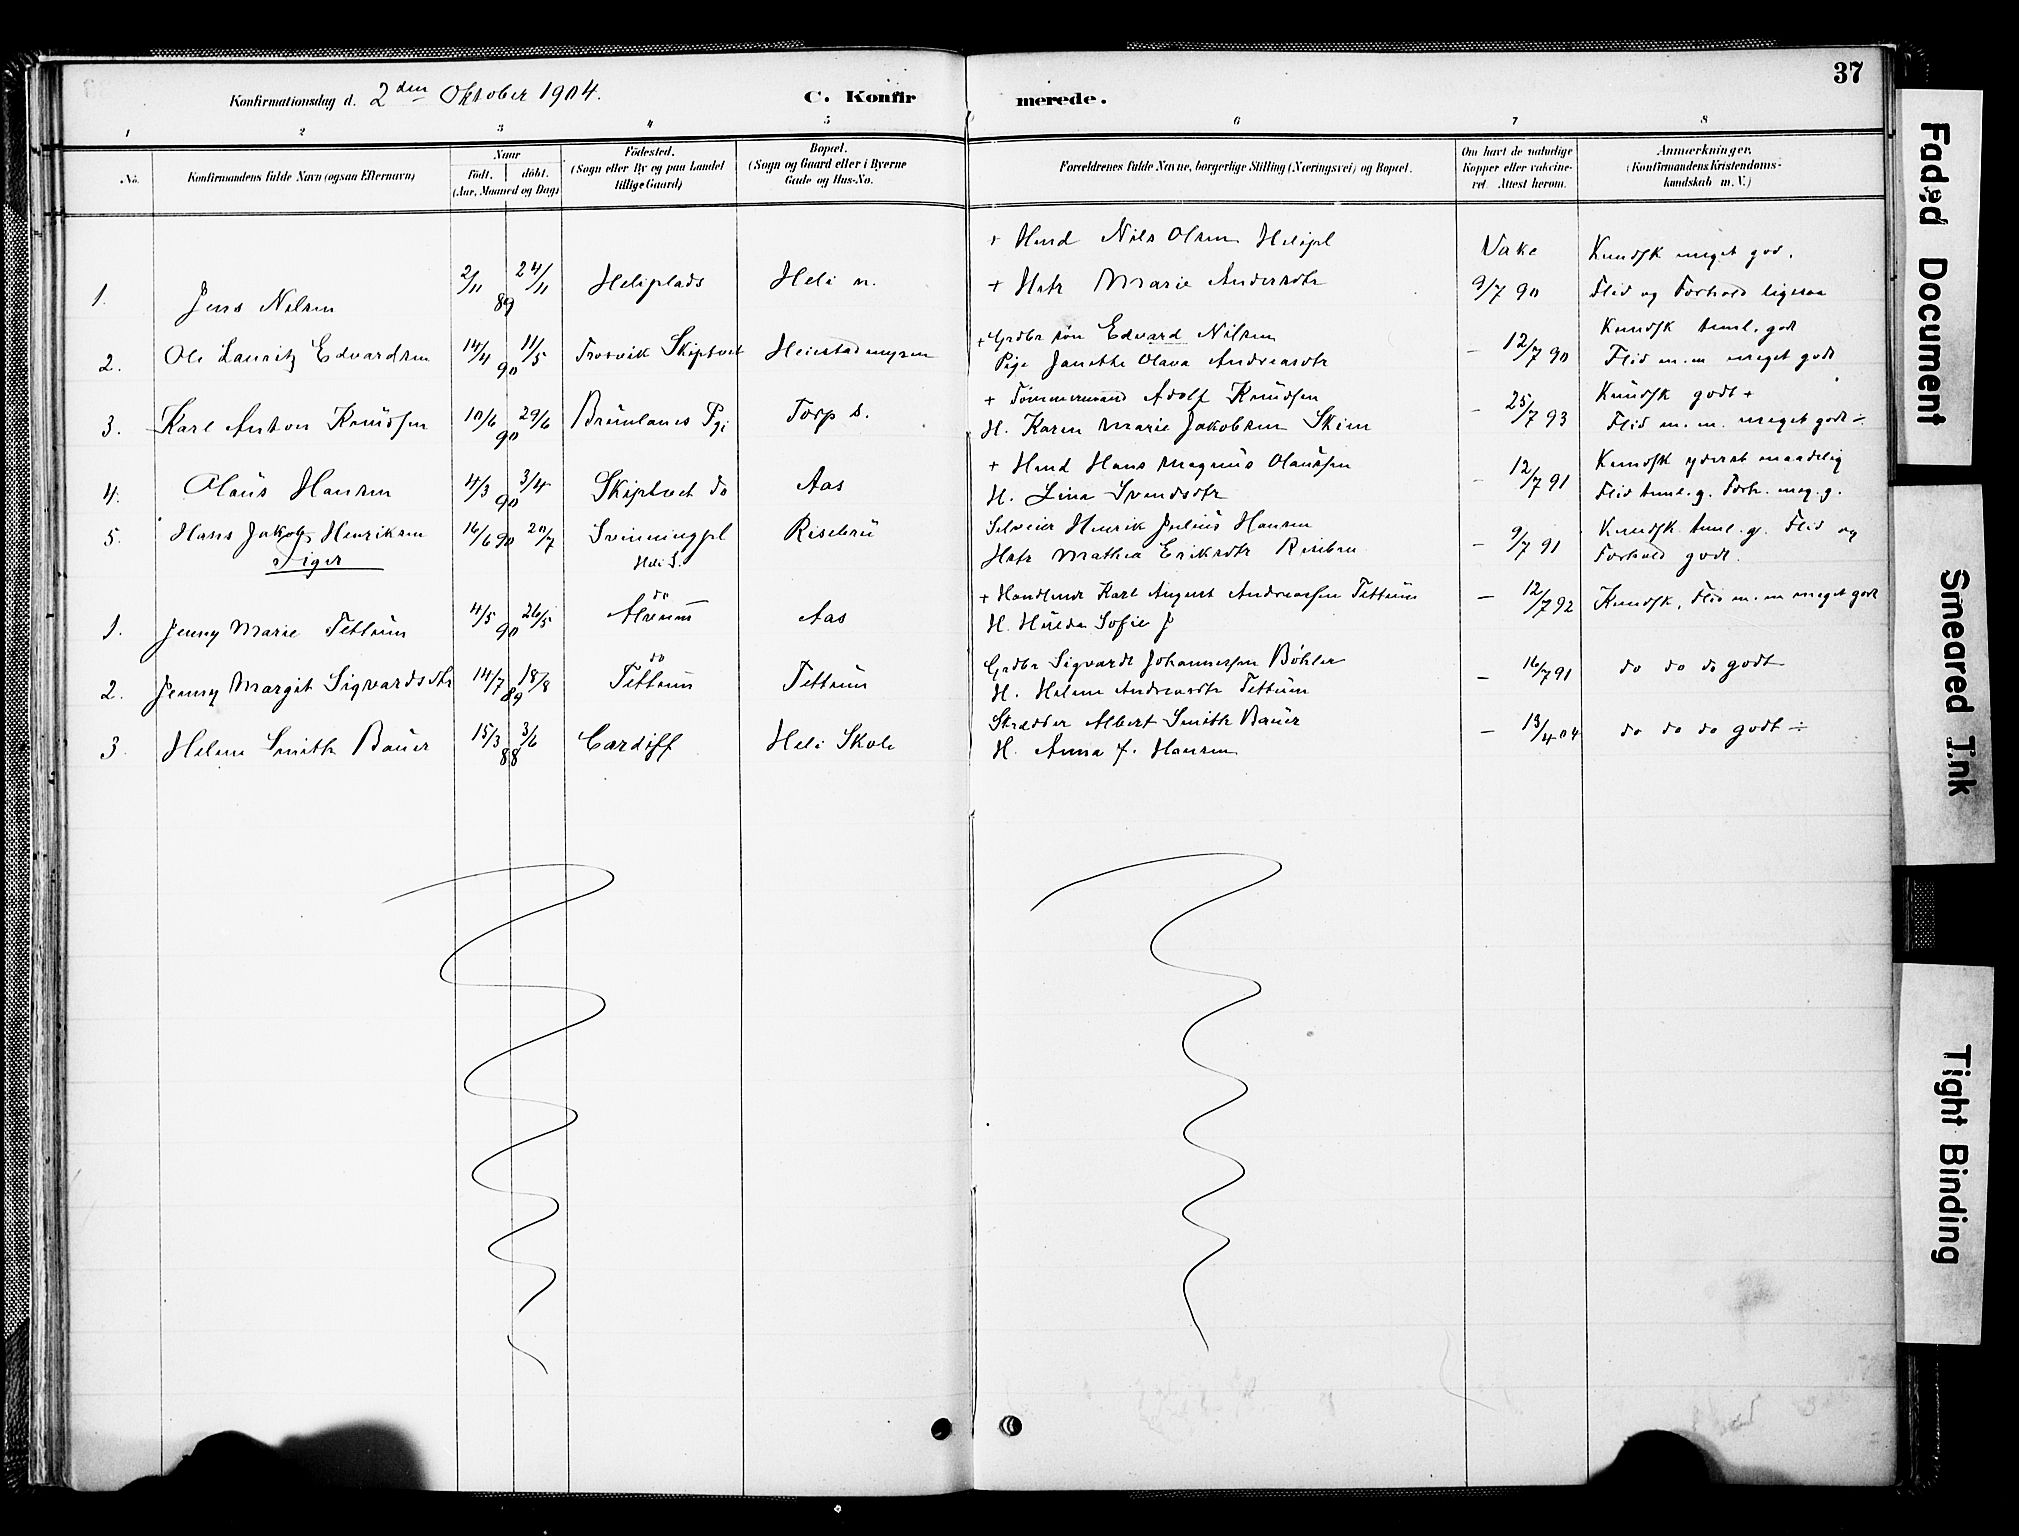 37
Konfirmationsdag d. 2den Oktober 1904. C. Konfirmerede.
1 2 3 4 5 6 7 8
No. Konfirmandens fulde Navn (ogsaa Efternavn) Naar født. døbt. (Aar, Maaned og Dag) Fødested. (Sogn eller By og paa Landet tillige Gaard) Bopæl. (Sogn og Gaard eller i Byerne Gade og Hus-No. Forældrenes fulde Navne, borgerlige Stilling (Næringsvei) og Bopæl. Om havt de naturlige Kopper eller vakcineret. Attest herom. Anmærkninger. (Konfirmandens Kristendomskundskab m. V.)
+ Hmd Nils Olsen Helipl Vakc Kundsk meget god.
1. Jens Nilsen 2/11 89 24/11 Heliplads Heli n. + Hstr Marie Andersdtr 9/7 90 Flid og Forhold ligesaa
+ Grdbr søn Edvard Nilsen Kundsk teml. godt
2. Ole Lauritz Edvardsen 14/4 90 11/5 Trosvik Skiptvet Heiestadmyren Pige Janette Olava Andreasdtr – 12/7 90 Flid m. m meget godt
+ Tømmermand Adolf Knudsen Kundsk godt +
3. Karl Anton Knudsen 10/6 90 29/6 Brunlanes Pgj Torp s. H. Karen Marie Jakobsen Skien – 25/7 93 Flid m. m. meget godt ÷
+ Hmd Hans Magnus Olaussen Kundsk yderst maadelig
4. Olaus Hansen 4/3 90 3/4 Skiptvet do Aas H. Lina Svendsdtr – 12/7 91 Flid teml. g. Forh. meg. g.
Selveier Henrik Julius Hansen Kundsk teml. g. Flid og
5. Hans Jakob Henriksen 16/6 90 20/7 Svinningpl Heli S. Risebru Hstr Mathea Eriksdtr Risebru – 9/7 91 Forhold godt.
Piger
+ Handlende Karl August Andreassen Tettum – 12/7 92 Kundsk, Flid m. m meget godt
1. Jenny Marie Tettum 4/5 90 26/5 do Aas H. Hulda Sofie J
Grdbr Sigvardt Johannessen Bøhler
2. Jenny Margit Sigvardsdtr 14/7 89 18/8 do Tettum Tettum H. Helene Andreasdtr Tettum – 16/7 91 do do do godt
Skrædder Albert Smith Bauer
3. Helene Smith Bauer 15/3 88 3/6 Cardiff Heli Skole H. Anna f. Hansen – 13/4 04 do do do godt ÷
Faded Document
Smeared Ink
Tight Binding